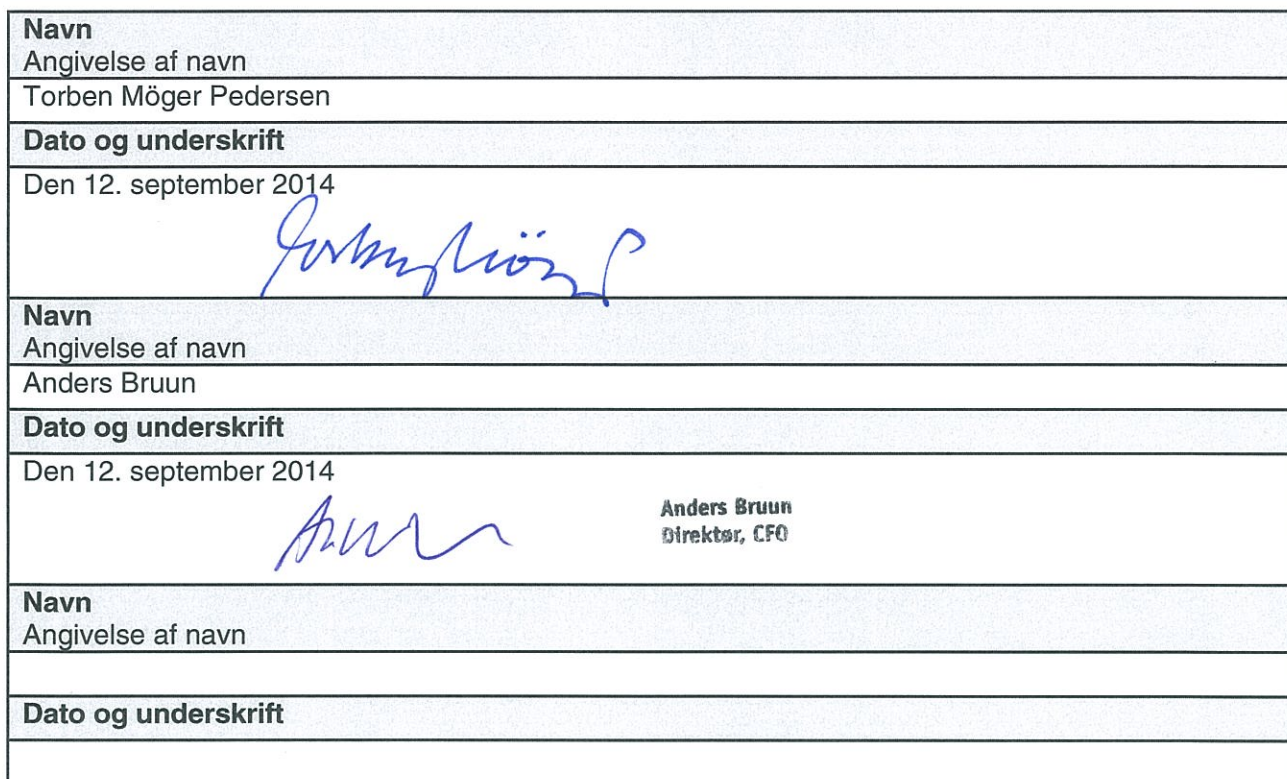 Navn
Angivelse af navn
Torben Möger Pedersen
Dato og underskrift
Den 12. september 2014
Navn
Angivelse af navn
Anders Bruun
Dato og underskrift
Den 12. september 2014
Anders Bruun
Direktør, CFO
Navn
Angivelse af navn
Dato og underskrift